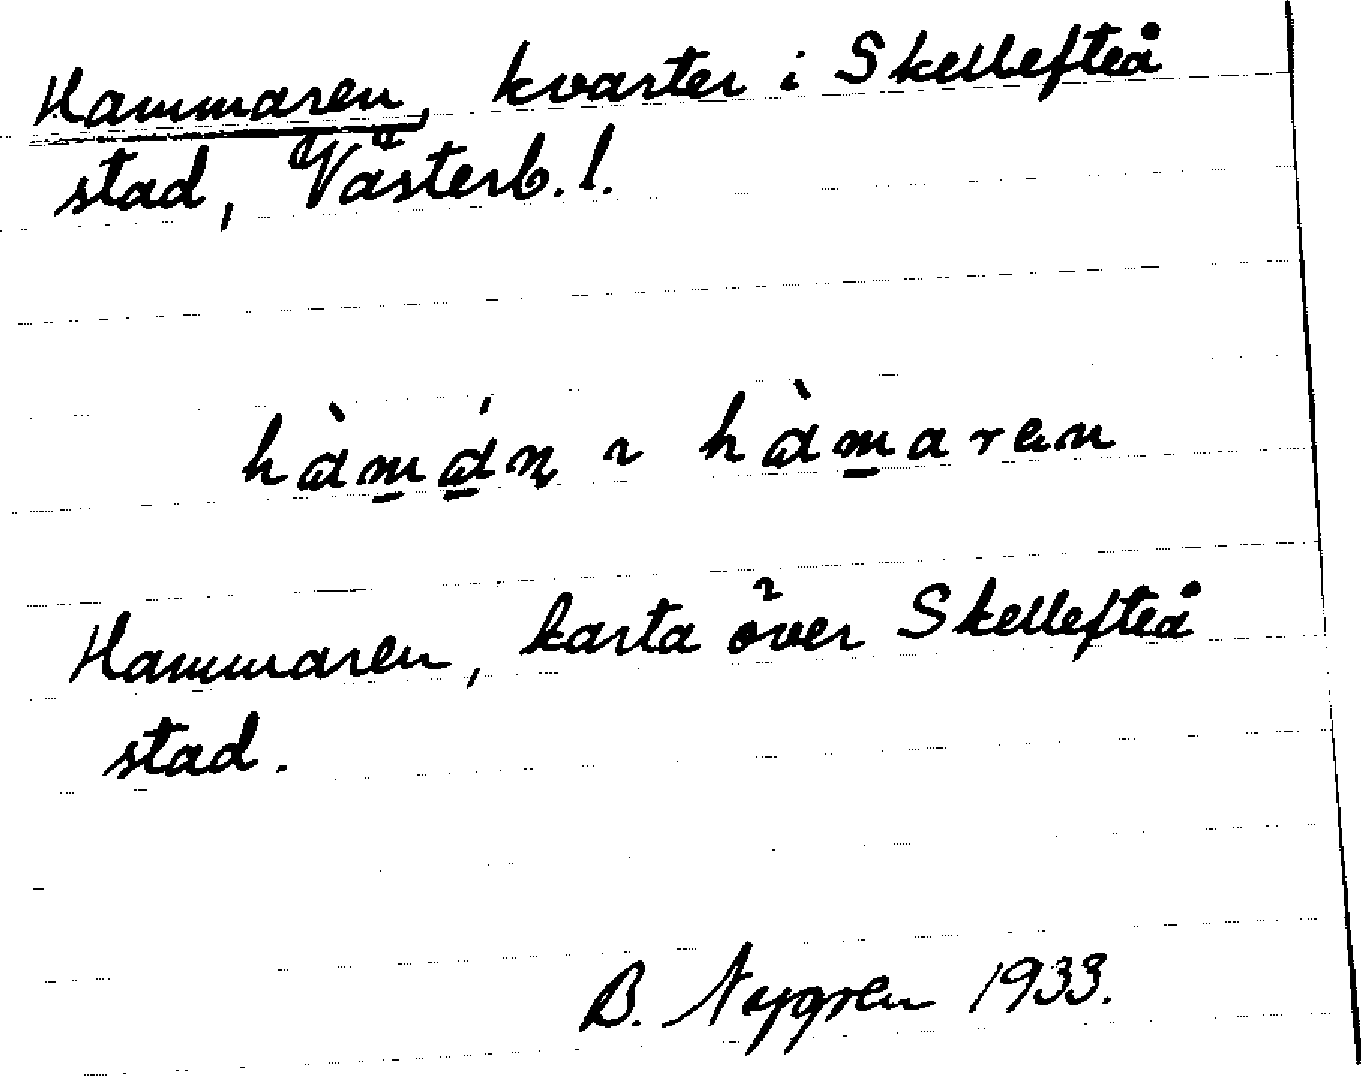 Hammaren, kvarter i Skellefteå
stad, Västerb. l.
hàm̲á̲ṇ ~ hàm̲aren
Hammaren, karta över Skellefteå
stad.
B. Nygren 1933.